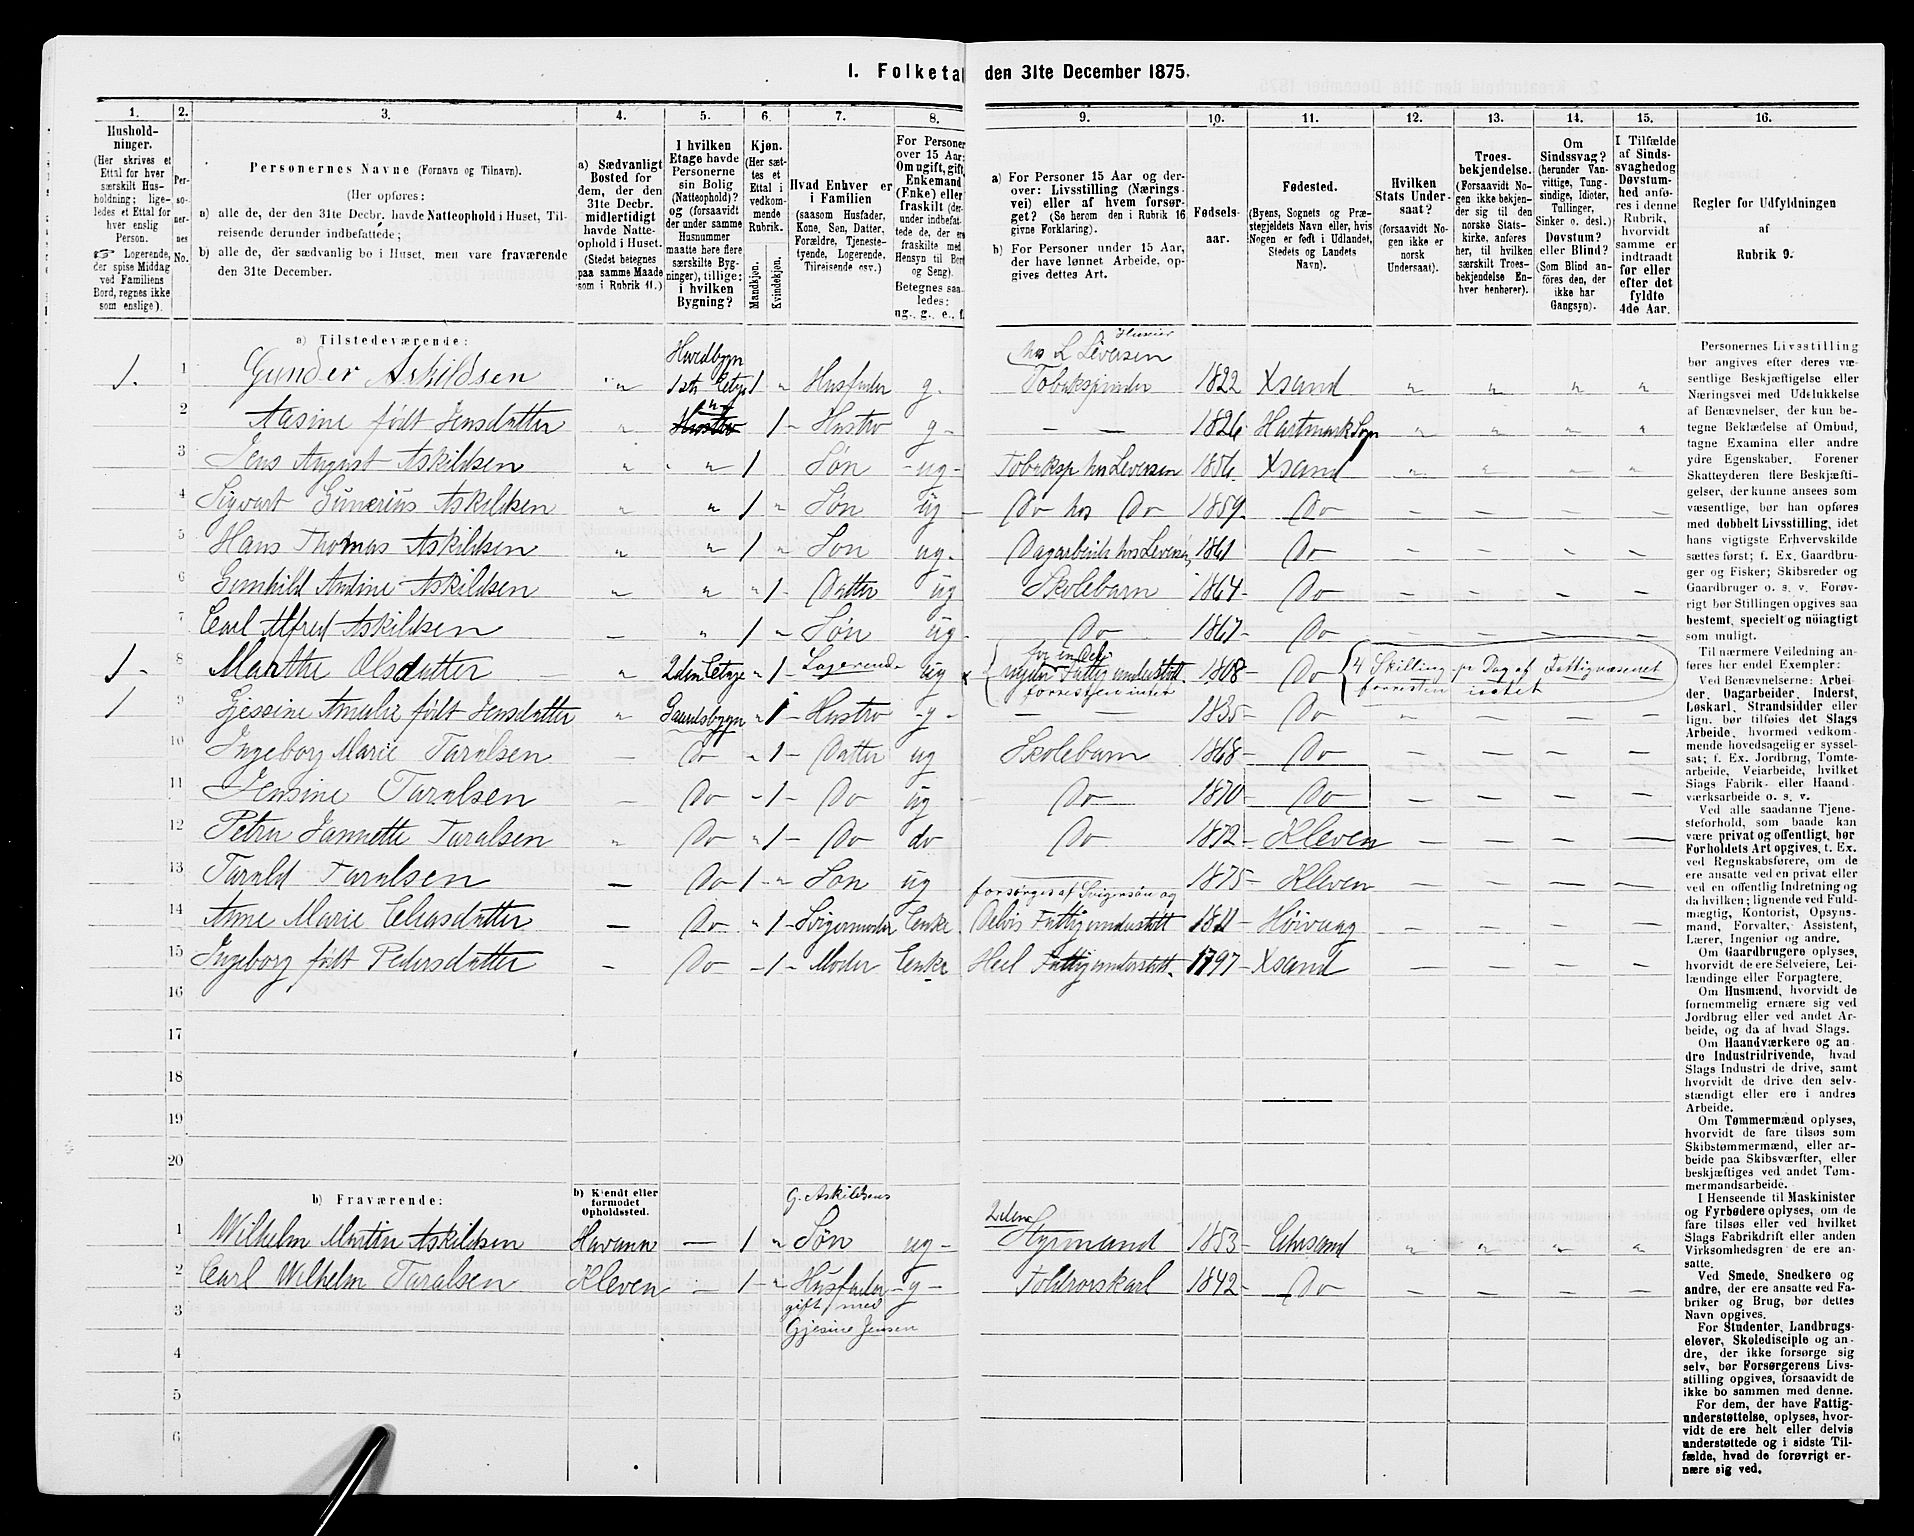 I. Folketal den 31te December 1875.
1. 2. 3. 4. 5. 6. 7. 8. 9. 10. 11. 12. 13. 14. 15. 16.
Hushold-
ninger.
(Her skrives et
Ettal for hver
særskilt Hus-
holdning; lige-
ledes et Ettal for
hver enslig
Person.
☞ Logerende,
der spise Middag
ved Familiens
Bord, regnes ikke
som enslige).
Per-
so-
ner-
nes
No.
Personernes Navne (Fornavn og Tilnavn).
(Her opføres:
a) alle de, der den 31te Decbr. havde Natteophold i Huset, Til-
reisende derunder indbefattede;
b) alle de, der sædvanlig bo i Huset, men vare fraværende
den 31te December.
a) Sædvanligt
Bosted for
dem, der den
31te Decbr.
midlertidigt
havde Natte-
ophold i Huset.
(Stedet betegnes
paa samme Maade
som i Rubrik 11.)
I hvilken
Etage havde
Personerne
sin Bolig
(Natteophold)?
og (forsaavidt
der under samme
Husnummer
maatte høre flere
særskilte Byg-
ninger), tillige:
i hvilken
Bygning?
Kjøn.
(Her sæt-
tes et
Ettal i
vedkom-
mende
Rubrik.
Mandkjøn.
Kvindekjøn.
Hvad Enhver er
i Familien
(saasom Husfader,
Kone, Søn, Datter,
Forældre, Tjeneste-
tyende, Logerende,
Tilreisende osv.)
For Personer
over 15 Aar:
Om ugift, gift,
Enkemand
(Enke) eller
fraskilt (der-
under indbefat-
tede de, der ere
fraskilte med
Hensyn til Bord
og Seng).
Betegnes saa-
ledes:
ug., g., e., f.
a) For Personer 15 Aar og der-
over: Livsstilling (Nærings-
vei) eller af hvem forsør-
get? (Se herom den i Rubrik 16
givne Forklaring).
b) For Personer under 15 Aar,
der have lønnet Arbeide, op-
gives dettes Art.
Fødsels-
aar.
Fødested.
(Byens, Sognets og Præ-
stegjeldets Navn eller, hvis
Nogen er født i Udlandet,
Stedets og Landets
Navn).
Hvilken
Stats Under-
saat?
(forsaavidt No-
gen ikke er
norsk
Undersaat).
Troes-
bekjendelse.
(Forsaavidt No-
gen ikke bekjen-
der sig til den
norske Stats-
kirke, anføres
her, til hvilken
særskilt Troes-
bekjendelse En-
hver henhører).
Om
Sindssvag?
(herunder Van-
vittige, Tung-
sindige, Idioter,
Tullinger,
Sinker o. desl.)
Døvstum?
eller Blind?
(Som Blind an-
føres den, der
ikke har
Gangsyn).
I Tilfælde
af Sinds-
svaghed og
Døvstum-
hed anfø-
res i denne
Rubrik,
hvorvidt
samme er
indtraadt
før eller
efter det
fyldte
4de Aar.
Regler for Udfyldningen
af
Rubrik 9.
a) Tilstedeværende:
Hovedbygn hos L Liversen Huseier
1. 1 Gunder Askildsen " 1ste Etage 1 " Husfader g. Tobakspinder 1822 Xsand " " " "
2 Aasine født Jensdatter " Hustro " 1 - Hustro g - — — 1826 Hartmark Sogn " " " "
3 Jens August Askildsen " " " 1 Søn - ug - Tobaksp hos Leversen 1856. Xsand " " - "
4 Sigvart Gunerius Askildsen " " 1 " Søn ug - Do hos Do 1859 Do " " - "
5 Hans Thomas Askildsen " " 1 " Søn ug. Dagarbeide hos Leversen 1861 Do " " - "
6 Gunhild Andine Askildsen " " " 1 - Datter ug Skolebarn 1864 - Do
7 Carl Alfred Askildsen — " 1 " Søn ug - Do 1867 - Do
1 - 8 Marthe Olsdatter " 2den Etage " 1 - Logerende ug x for en Del nyder Fattigunderstøtt. forresten intet 1808 - Do 4 Skilling pr Dag af Fattigvæsenet forresten intet
1 9 Gjessine Amalie født Jensdatter " Gaardsbygn " 1 - Hustro - g - — — 1835 - Do
10 Ingeborg Marie Taralsen — Do " 1 - Datter ug Skolebarn 1868 - Do — — — —
11 Jensine Taralsen — Do - 1 - Do ug - Do 1870 - Do — — — —
12 Petra Jannette Taralsen " Do " 1 - Do do Do 1872 - Kleven — — — —
13 Tarald Taralsen — Do 1 - " Søn ug 1875 - Kleven — — — —
forsørges af Svigersøn og
14 Anne Marie Eliasdatter — Do " 1 - Svigermoder Enke Delvis Fattigunderstøtt 1811 - Høivaag — — — —
15 Ingeborg født Pedersdatter - Do - 1 - Moder Enke Heel Fattigunderstøtt. 1797 - Xsand — — — —
16
17
18
19
20
b) Fraværende:
b) Kjendt eller
formodet
Opholdssted.
G. Askildsens
1 Wilhelm Martin Askildsen Havanna — 1 " Søn ug - 2den Styrmand 1853 - Chrsand " " " "
2 Carl Wilhelm Taralsen Kleven — 1 - " Husfader - g - Toldrorskarl 1842 - Do
3 gift med
Gjesine Jensen
4
5
6
Personernes Livsstilling
bør angives efter deres væ-
sentlige Beskjæftigelse eller
Næringsvei med Udelukkelse
af Benævnelser, der kun be-
tegne Beklædelse af Ombud,
tagne Examina eller andre
ydre Egenskaber. Forener
Skatteyderen flere Beskjæfti-
gelser, der kunne ansees som
væsentlige, bør han opføres
med dobbelt Livsstilling, idet
hans vigtigste Erhvervskilde
sættes først; f. Ex. Gaardbru-
ger og Fisker; Skibsreder og
Gaardbruger o. s. v. Forøv-
rigt bør Stillingen opgives saa
bestemt, specielt og nöiagtigt
som muligt.
Til nærmere Veiledning an-
føres her endel Exempler:
Ved Benævnelserne: Arbei-
der, Dagarbeider, Inderst,
Løskarl, Strandsidder eller
lign. bør tilføies det Slags
Arbeide, hvormed vedkom-
mende hovedsagelig er syssel-
sat; f. Ex. Jordbrug, Tomte-
arbeide, Veiarbeide, hvilket
Slags Fabrik- eller Haand-
værksarbeide o. s. v.
Ved alle saadanne Tjene-
steforhold, som baade kan
være privat og offentligt, bør
Forholdets Art opgives, f. Ex.
ved Regnskabsførere, om de
ere ansatte ved en privat eller
ved en offentlig Indretning og
da hvilken; lignende ved Fuld-
mægtig, Kontorist, Opsyns-
mand, Forvalter, Assistent,
Lærer, Ingeniør og andre.
Om Gaardbrugere oplyses,
hvorvidt de ere Selveiere, Lei-
lændinge eller Forpagtere.
Om Husmænd, hvorvidt de
fornemmelig ernære sig ved
Jordbrug eller ved andet Ar-
beide, og da af hvad Slags.
Om Haandværkere og an-
dre Industridrivende, hvad
Slags Industri de drive, samt
hvorvidt de drive den selv-
stændigt eller ere i andres
Arbeide.
Om Tømmermænd oplyses,
hvorvidt de fare tilsøs som
Skibstømmermænd, eller ar-
beide paa Skibsværfter, eller
beskjæftiges ved andet Tøm-
mermandsarbeide.
I Henseende til Maskinister
og Fyrbødere oplyses, om de
fare tilsøs eller ved hvilket
Slags Fabrikdrift eller anden
Virksomhedsgren de ere an-
satte.
Ved Smede, Snedkere og
andre, der ere ansatte ved Fa-
briker og Brug, bør dettes
Navn opgives.
For Studenter, Landbrugs-
elever, Skoledisciple og an-
dre, der ikke forsørge sig
selv, bør Forsørgerens Livs-
stilling opgives, forsaavidt de
ikke bo sammen med denne.
For dem, der have Fattig-
understøttelse, oplyses, hvor-
vidt de ere helt eller delvis
understøttede og i sidste Til-
fælde, hvad de forøvrigt er-
nære sig ved.